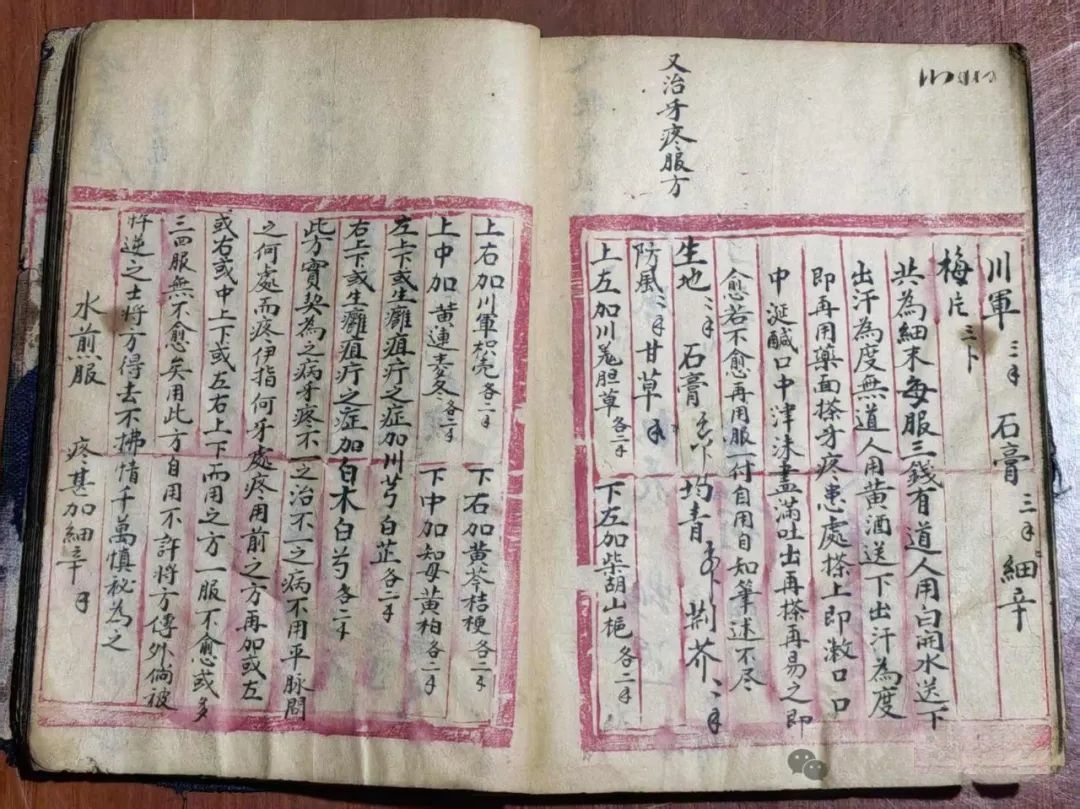 川軍 三錢 石膏 三錢 細辛
梅片
共為細末每服三錢有道人用白開水送下
出汗為度無道人用黄酒送下出汗為度
即再用藥面搽牙疼患處搽上即漱口口
中涎鹹口中津沫盡滿吐出再搽再易之即
愈若不愈再用服一付自用自知筆述不尽
又治牙疼服方
生地 二錢 石膏 青 荊芥 二錢
防風 二錢 甘草 錢
上左加川羌胆草 各二錢 下左加柴胡山栀 各二錢
上右加川軍枳壳 各二錢 下右加黄芩桔梗 各二錢
上中加黄連麦冬 各二錢 下中加知母黄柏 各二錢
左上下或生癰疽疔之症加川芎白芷 各二錢
右上下或生癰疽疔之症加白木白芍 各二錢
此方實契為之病牙疼不一之治不一之病不用平脉問
之何處而疼伊指何牙處疼用前之方再加或左
或右或中上下或左右上下而用之方一服不愈或多
三四服無不愈矣用此方自用不許將方傳外倘被
忤逆之士將方得去不拂情千萬慎秘為之
水煎服 疼甚加細辛 錢